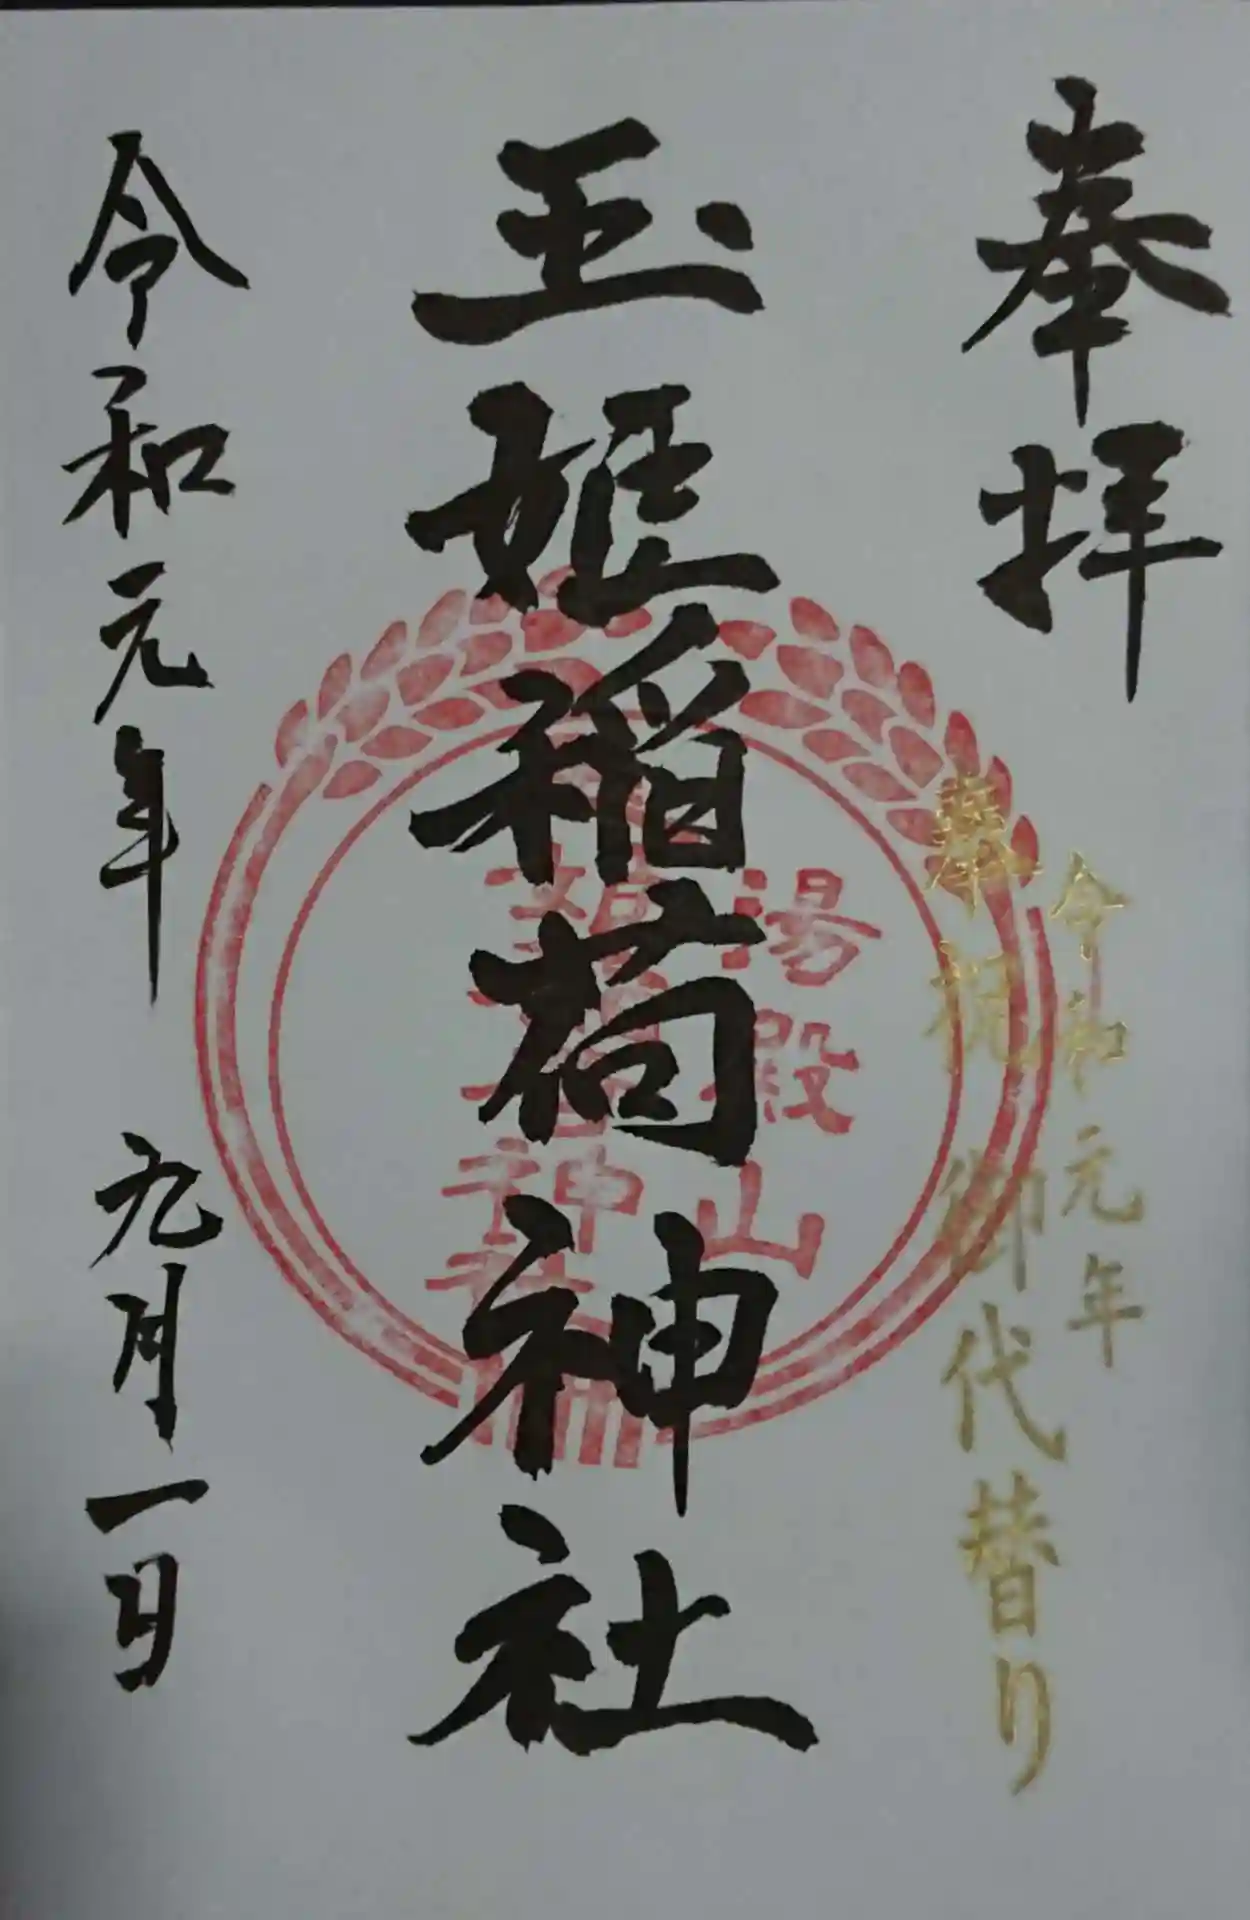 奉拝
令和元年
奉祝 御代替り
玉姫稲荷神社
湯殿山
令和元年 九月一日